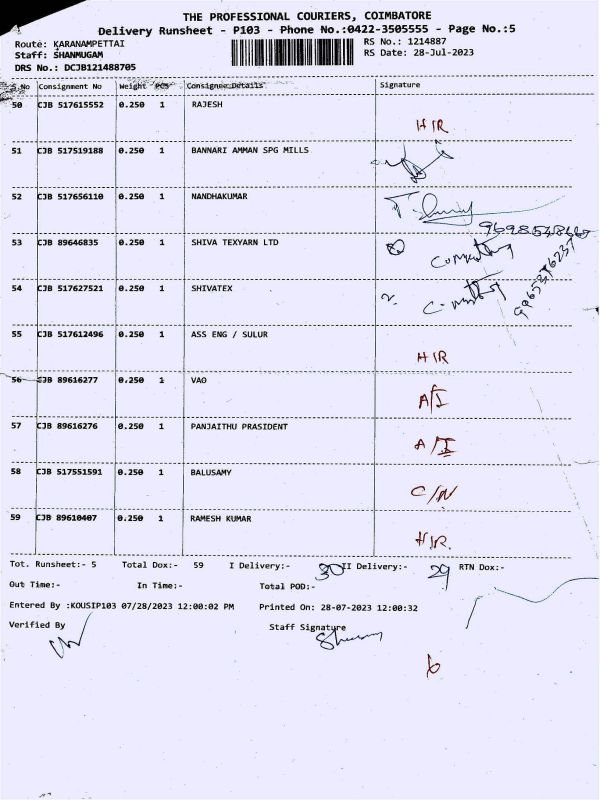 THE PROFESSIONAL COURIERS, COIMBATORE
Delivery Runsheet - P103 - Phone No.:0422-3505555 - Page No.:5
Route: KARANAMPETTAI RS No.: 1214887
Staff: SHANMUGAM RS Date: 28-Jul-2023
DRS No.: DCJB121488705
S.No Consignment No Weight PCS Consignee Details Signature
50 CJB 517615552 0.250 1 RAJESH
H/R
51 CJB 517519188 0.250 1 BANNARI AMMAN SPG MILLS
52 CJB 517656110 0.250 1 NANDHAKUMAR
53 CJB 89646835 0.250 1 SHIVA TEXYARN LTD
54 CJB 517627521 0.250 1 SHIVATEX
55 CJB 517612496 0.250 1 ASS ENG / SULUR
H/R
56 CJB 89616277 0.250 1 VAO
A/I
57 CJB 89616276 0.250 1 PANJAITHU PRASIDENT
A/I
58 CJB 517551591 0.250 1 BALUSAMY
C/N
59 CJB 89610407 0.250 1 RAMESH KUMAR
H/R.
Tot. Runsheet:- 5 Total Dox:- 59 I Delivery:- 30 II Delivery:- 29 RTN Dox:-
Out Time:- In Time:- Total POD:-
Entered By :KOUSIP103 07/28/2023 12:00:02 PM Printed On: 28-07-2023 12:00:32
Verified By Staff Signature